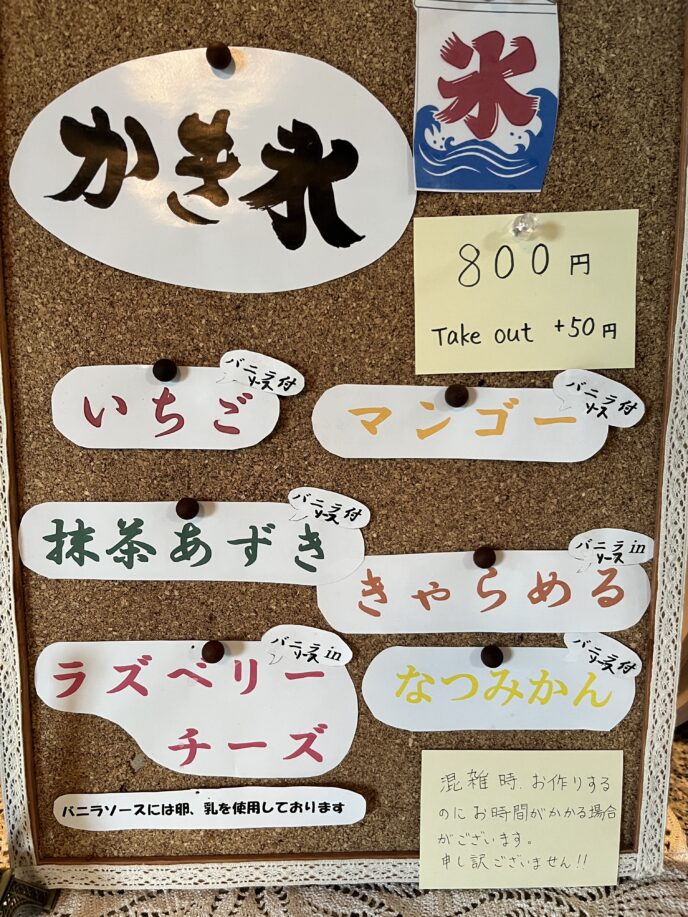 かき氷
氷
800円
Take out +50円
いちご
バニラ
ソース付
マンゴー
バニラ付
ソース
抹茶あずき
バニラ付
ソース
きゃらめる
バニラin
ソース
ラズベリー
チーズ
バニラin
ソース
なつみかん
バニラ
ソース付
バニラソースには卵、乳を使用しております
混雑時、お作りする
のにお時間がかかる場合
がございます。
申し訳ございません!!